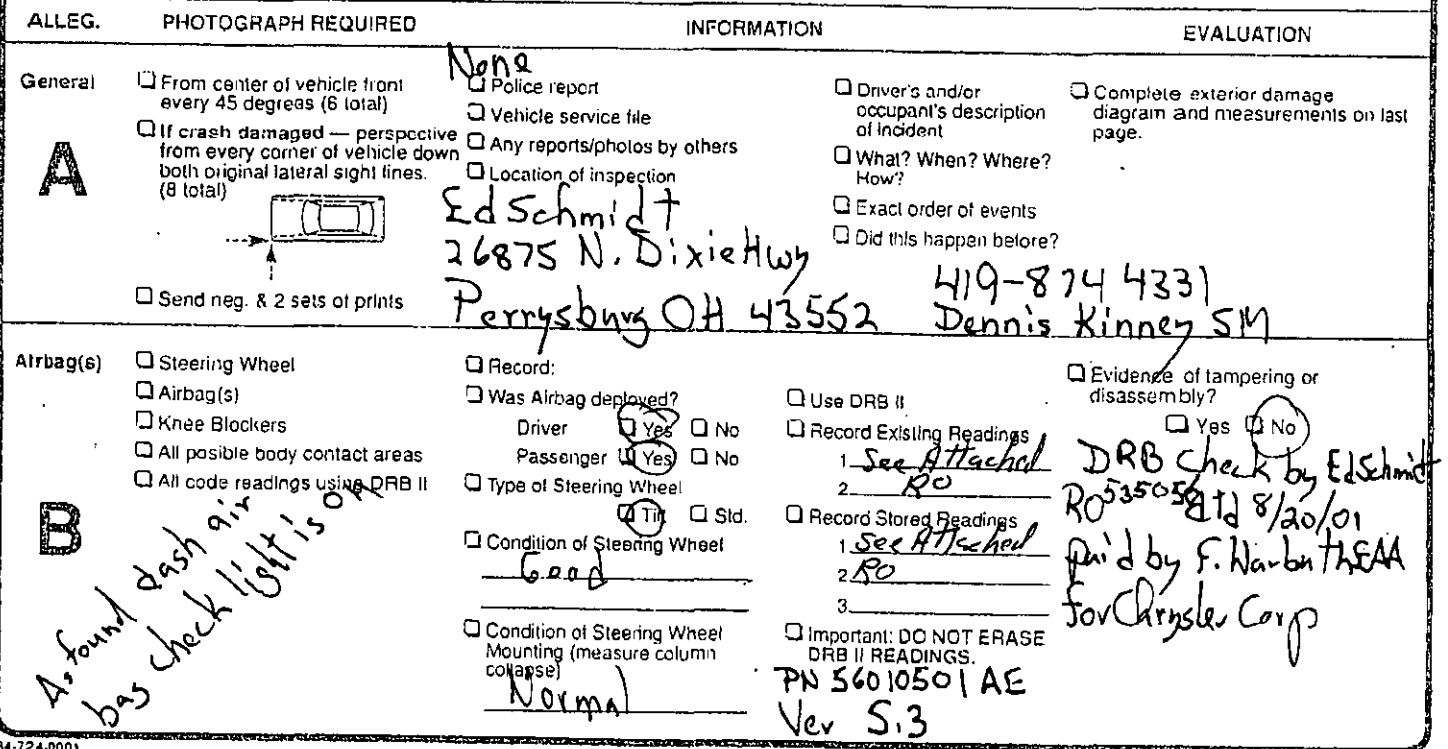 ALLEG. PHOTOGRAPH REQUIRED INFORMATION EVALUATION
General
A
From center of vehicle front
every 45 degrees (6 total)
If crash damaged — perspective
from every corner of vehicle down
both original lateral sight lines.
(8 total)
Send neg. & 2 sets of prints
None
Police report
Vehicle service file
Any reports/photos by others
Location of inspection
Ed Schmidt
26875 N. Dixie Hwy
Perrysburg OH 43552
Driver's and/or
occupant's description
of incident
What? When? Where?
How?
Exact order of events
Did this happen before?
419-874 4331
Dennis Kinney SM
Complete exterior damage
diagram and measurements on last
page.
Airbag(s)
B
Steering Wheel
Airbag(s)
Knee Blockers
All posible body contact areas
All code readings using DRB II
As found dash air
bag check light is on
Record:
Was Airbag deployed?
Driver Yes No
Passenger Yes No
Type of Steering Wheel
Tilt Std.
Condition of Steering Wheel
Good
Condition of Steering Wheel
Mounting (measure column
collapse)
Normal
Use DRB II
Record Existing Readings
1 See Attached
2 RO
Record Stored Readings
1 See Attached
2 RO
3
Important: DO NOT ERASE
DRB II READINGS.
PN 56010501 AE
Ver 5.3
Evidence of tampering or
disassembly?
Yes No
DRB Check by Ed Schmidt
RO 535058 dtd 8/20/01
paid by F.
for Chrysler Corp
84-724-0001